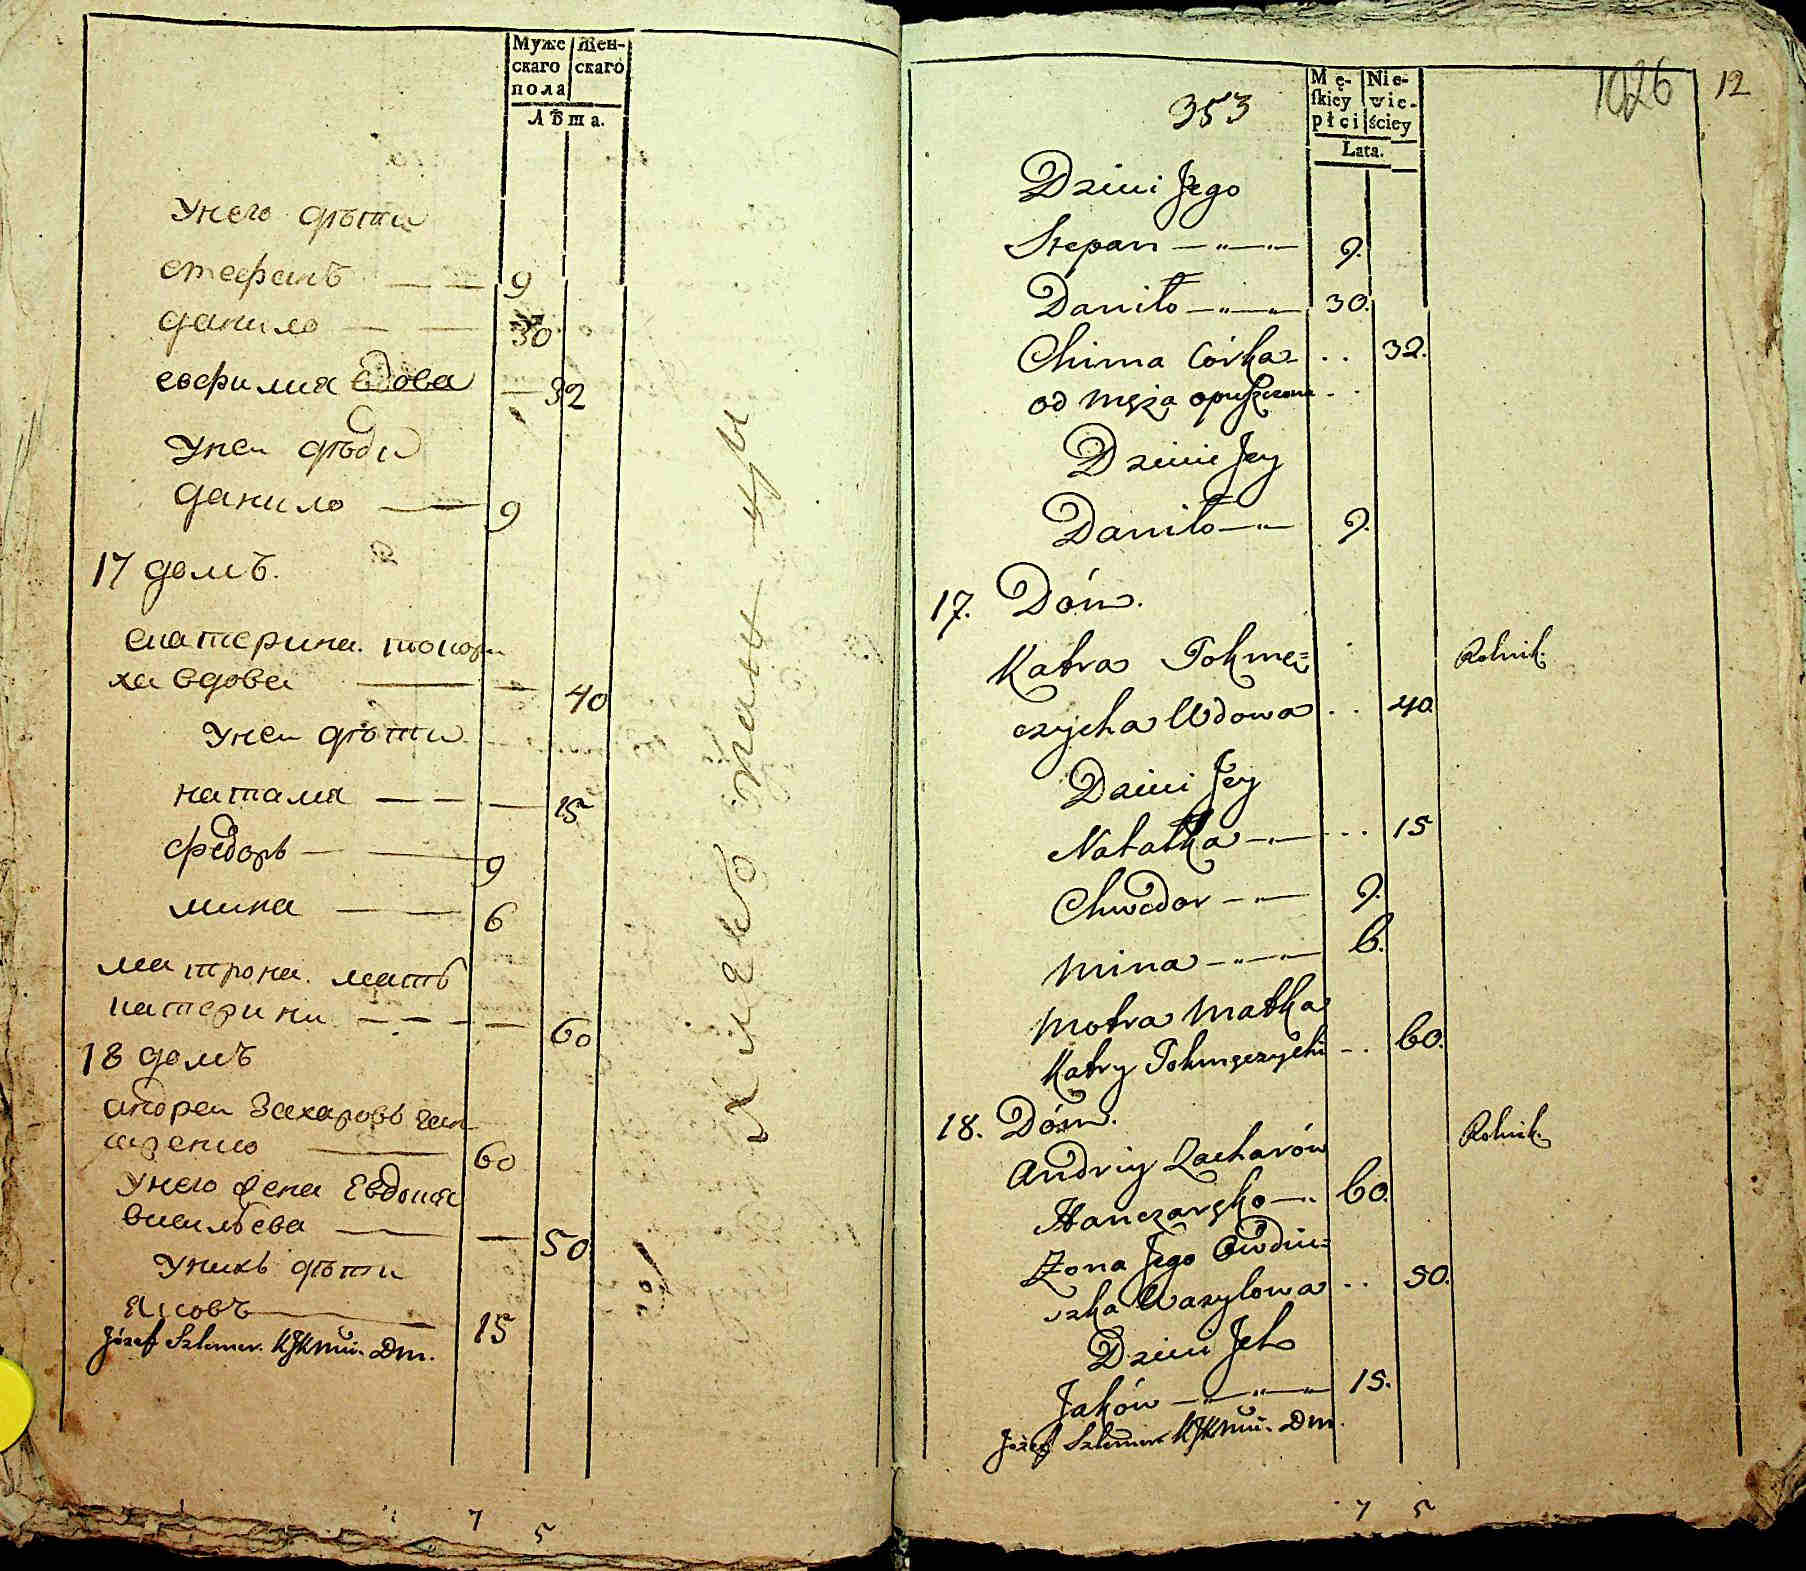 Муже
скаго
пола
Жен-
скаго
Лѣта.
Унего дѣти
стефанъ — — 9
данило — — 30
евфимия вдова — 32
Унеи дѣди
данило — 9
17 домъ.
екатерина.
ха вдова — — 40
Унеи дѣти
наталия — — — 15
федоръ — — 9
мина — — 6
матрона. мать
катерини — — — — 60
18 домъ
андреи Захаровъ ган
чаренко — 60
Унего жена Евдокия
васильева — — 50
Унихъ дѣти
Яковъ — 15
Józef Szlemer. Dm.
7 5
353
1026
12
Mę-
skiey
płci
Nie-
wie-
ściey
Lata.
Dzieci Jego
Stepan — „ — „ — 9.
Daniło — „ — „ — 30.
Chima Córka . . 32.
od męża opuszczona . .
Dzieci Jey
Daniło — „ — 9.
17. Dóm.
Katra Tokmę= Rolnik.
czycha Wdowa . . 40.
Dzieci Jey
Natałka — „ — . . . 15
Chwedor — „ — 9.
Mina — „ — „ — 6.
Motra Matka
Katry Tokmęczychi — . 60.
18. Dóm. Rolnik.
Andriy Zacharów
Hanczaręko — . 60.
Żona Jego Owdiu=
szka Wasylowa . . 50.
Dzieci Jeh
Jaków — „ — „ — 15.
Józef Szlemer. Dm.
7 5